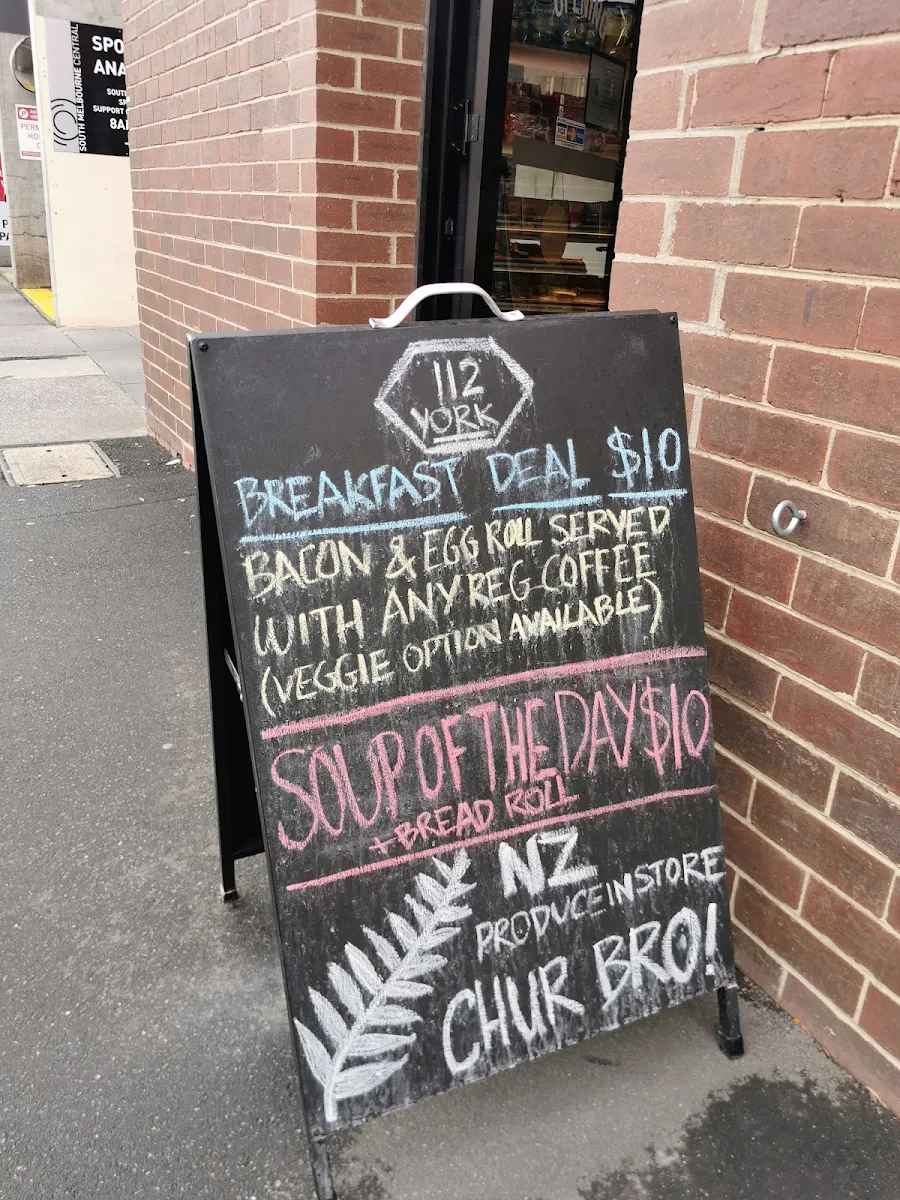 SOUTH MELBOURNE CENTRAL
SPO
ANA
SUPPORT
8AI
112
YORK
BREAKFAST DEAL $10
BACON & EGG ROLL SERVED
WITH ANY REG COFFEE
(VEGGIE OPTION AVAILABLE)
SOUP OF THE DAY $10
+ BREAD ROLL
NZ
PRODUCE IN STORE
CHUR BRO!